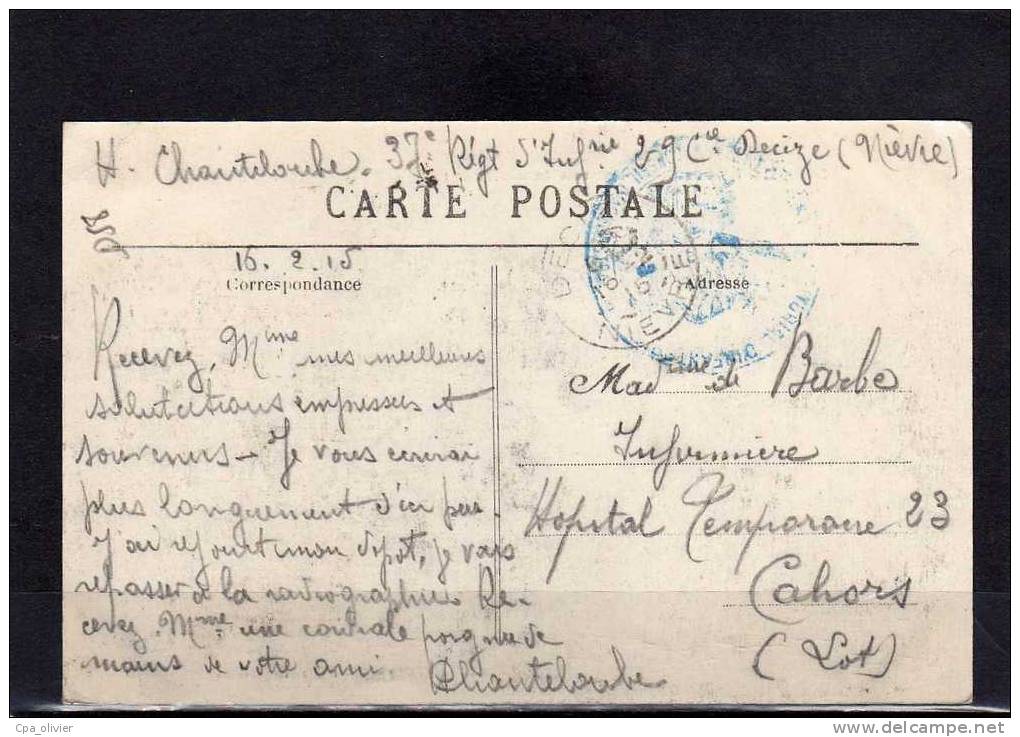 H. Chanteloube. 37e Régt d'Infrie 29 Cie Decize (Nièvre)
CARTE POSTALE
16.2.15
Correspondance
Adresse
Recevez, Mme mes meilleures
salutations empressées et
souvenirs – Je vous écrirai
plus longuement d'ici peu.
J'ai rejoint mon dépot, je vais
repasser à la radiographie. Re-
cevez Mme une cordiale poignée de
mains de votre ami
Chanteloube
Madme de Barbe
Infirmière
Hopital Temporaire 23
Cahors
(Lot)
Cpa_olivier
delcampe.net